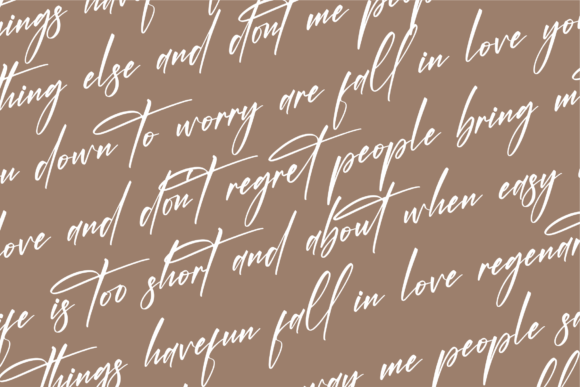 hings
thing else and dont me people
u down to worry are fall in love yo
love and dont regret people bring m
ife is too short and about when easy
things havefun fall in love regena
way me people sa